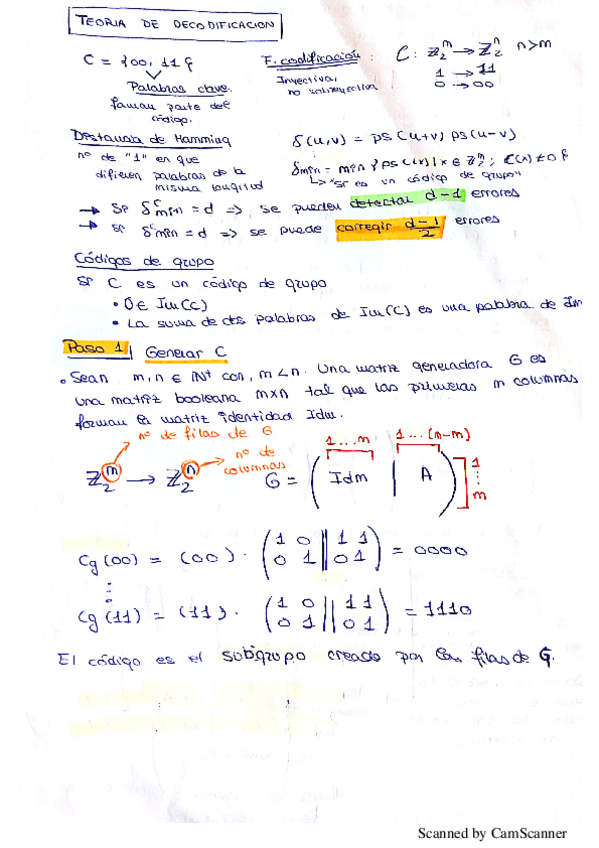 TEORIA DE DECODIFICACION
C = {00, 11}
Palabras clave.
forman parte del
código.
F. codificación:
Inyectiva,
no sobreyectiva
C: ℤ₂ᵐ → ℤ₂ⁿ n>m
1 → 11
0 → 00
Distancia de Hamming
nº de "1" en que
difieren palabras de la
misma longitud
δ(u,v) = ps(u+v) ps(u-v)
δmin = min { ps(C(x)) | x ∈ ℤ₂ᵐ; C(x) ≠ 0 }
↳ "si es un código de grupo"
→ Si δᶜmin = d => se pueden detectar d-1 errores
→ si δᶜmin = d => se puede corregir d-1/2 errores
Códigos de grupo
Si C es un código de grupo
• 0 ∈ Im(C)
• La suma de dos palabras de Im(C) es una palabra de Im
Paso 1 Generar C
• Sean m, n ∈ ℕ⁺ con, m < n. Una matriz generadora G es
una matriz booleana m×n tal que las primeras m columnas
forman la matriz identidad Idm.
nº de filas de G
nº de
columnas
ℤ₂ᵐ → ℤ₂ⁿ
1 ... m 1 ... (n-m)
G = ( Idm | A ) 1 ⋮ m
Cg (00) = (00) · ( 1 0 || 1 1
0 1 || 0 1 ) = 0000
⋮
Cg (11) = (11) · ( 1 0 || 1 1
0 1 || 0 1 ) = 1110
El código es el subgrupo creado por las filas de G.
1
Scanned by CamScanner